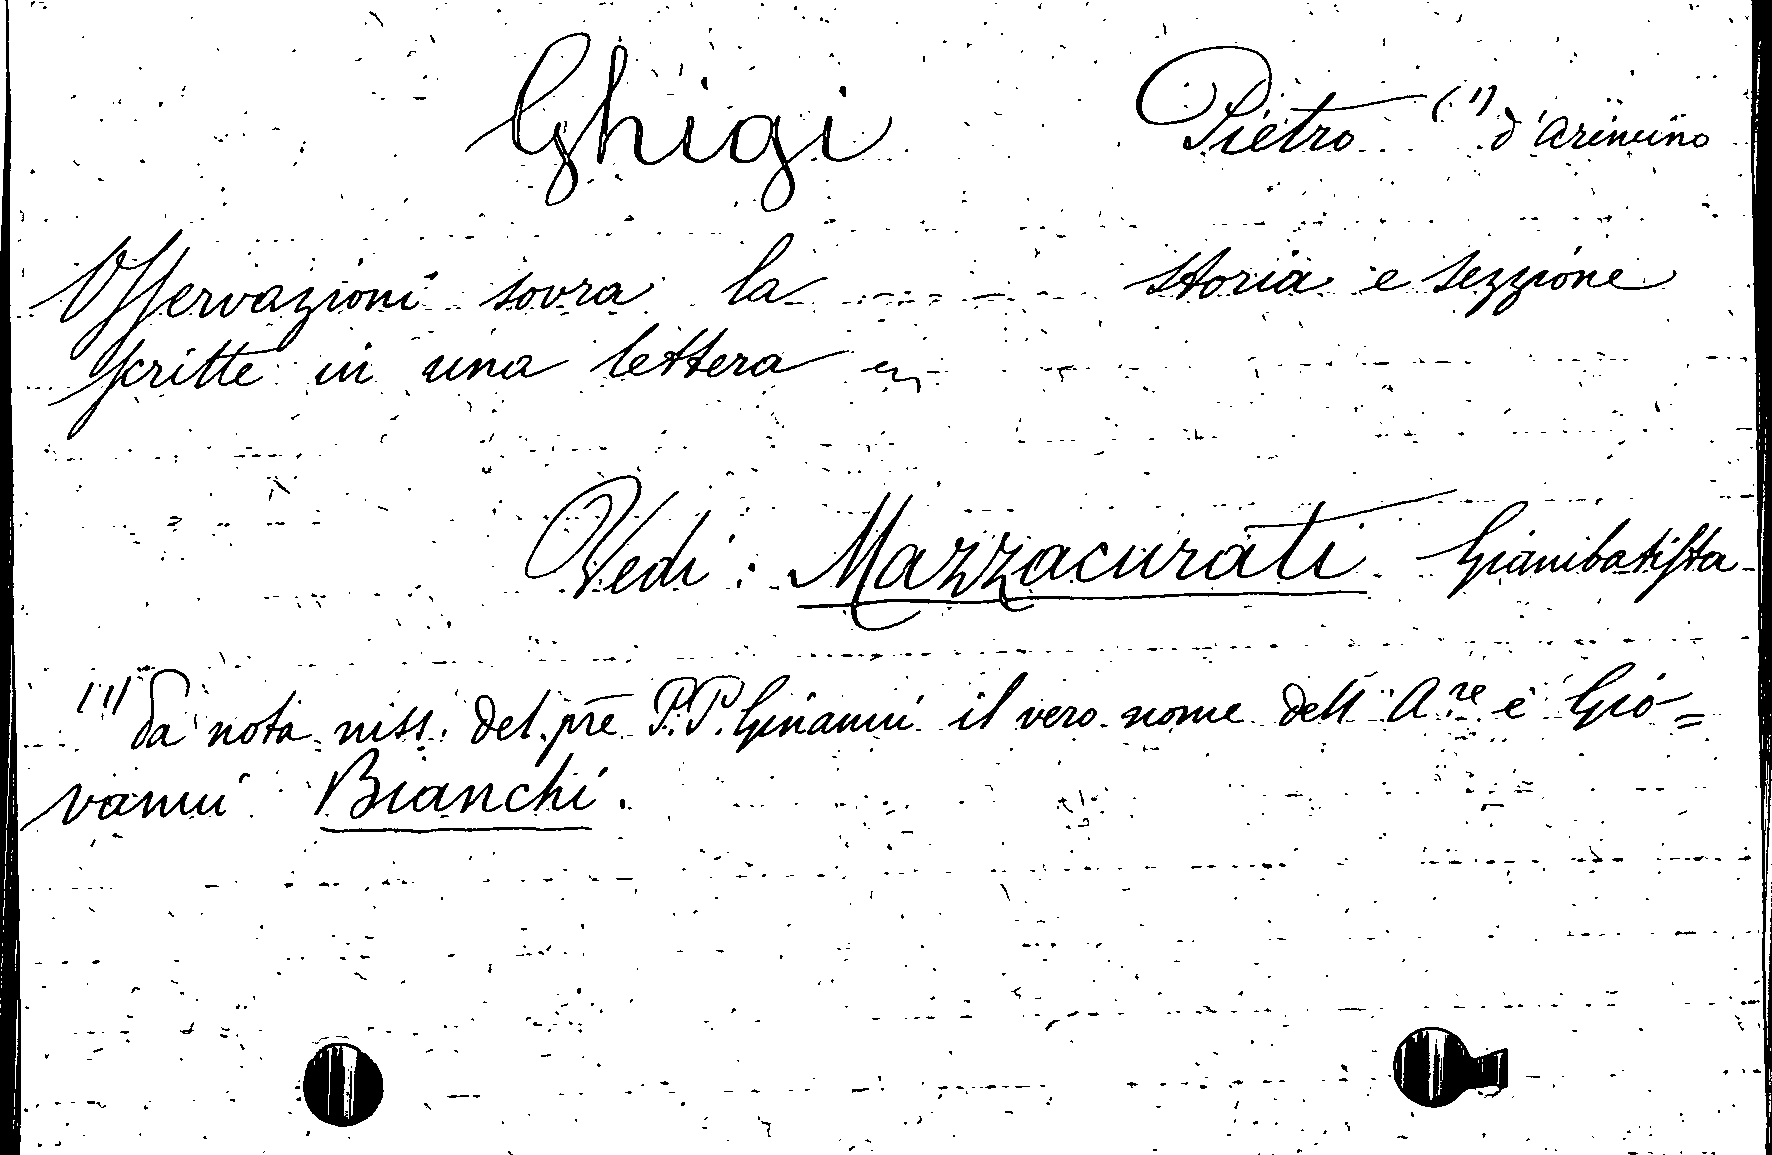 Ghigi Pietro (1) d'Arimino
Osservazioni sovra la storia e sezzione
scritte in una lettera
Vedi: Mazzacurati Giambatista
(1) da nota mss. del pre P.P. Ginanni il vero nome dell' Are è Gio=
vanni Bianchi.